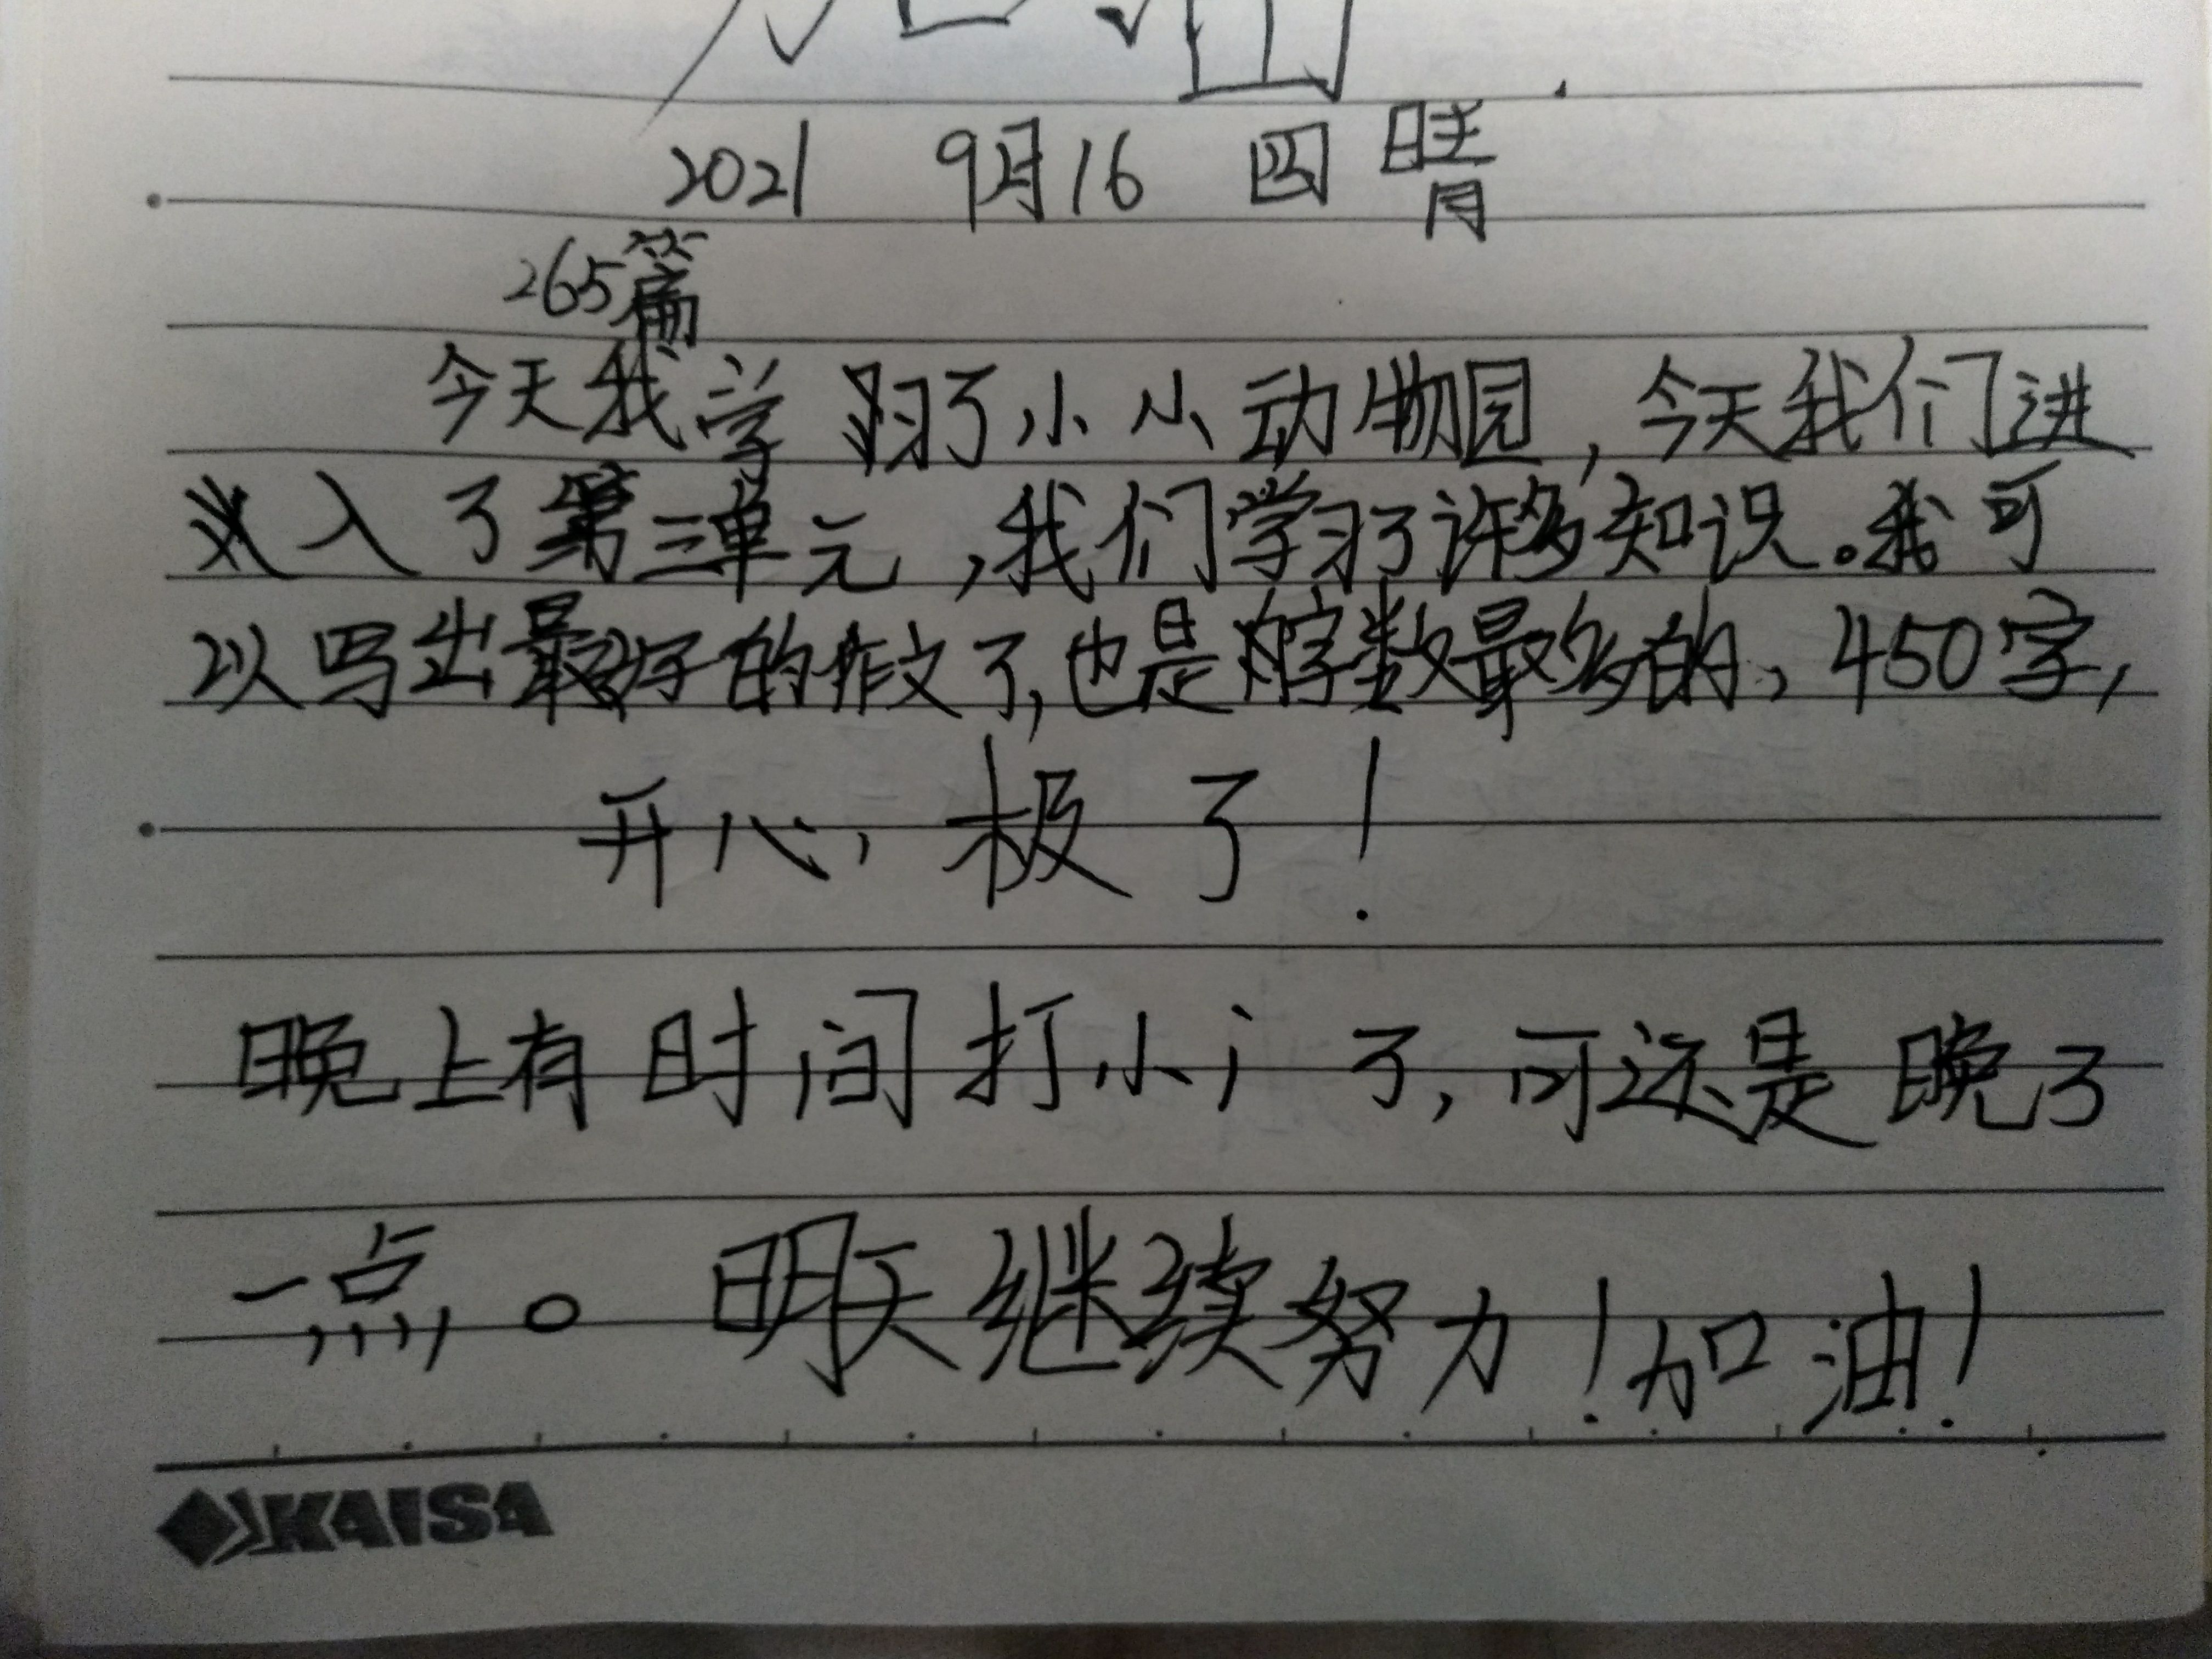 加油
2021 9月16 四 晴
265篇
今天我学习了小小动物园，今天我们进
入了第三单元，我们学习了许多知识。我可
以写出最好的作文了，也是字数最多的，450字，
开心，极了！
晚上有时间打小氵了，可还是晚了
一点。明天继续努力！加油！
KAISA